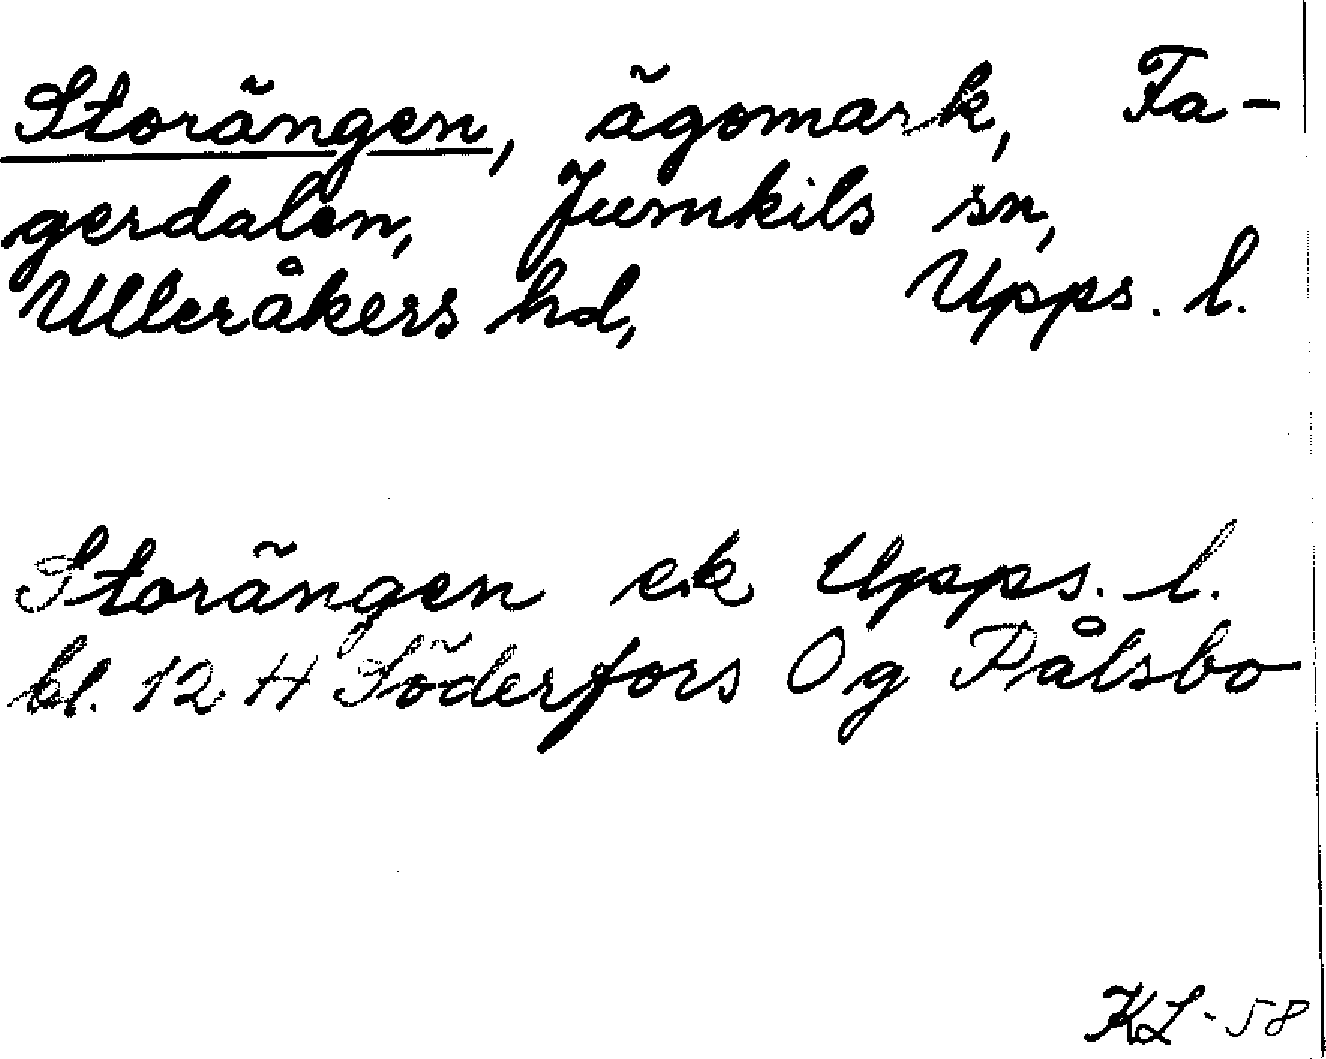 Storängen, ägomark, Fa-
gerdalen, Jumkils sn,
Ulleråkers hd, Upps. l.
Storängen ek Upps. l.
bl. 12 H Söderfors 0g Pålsbo
KL-58